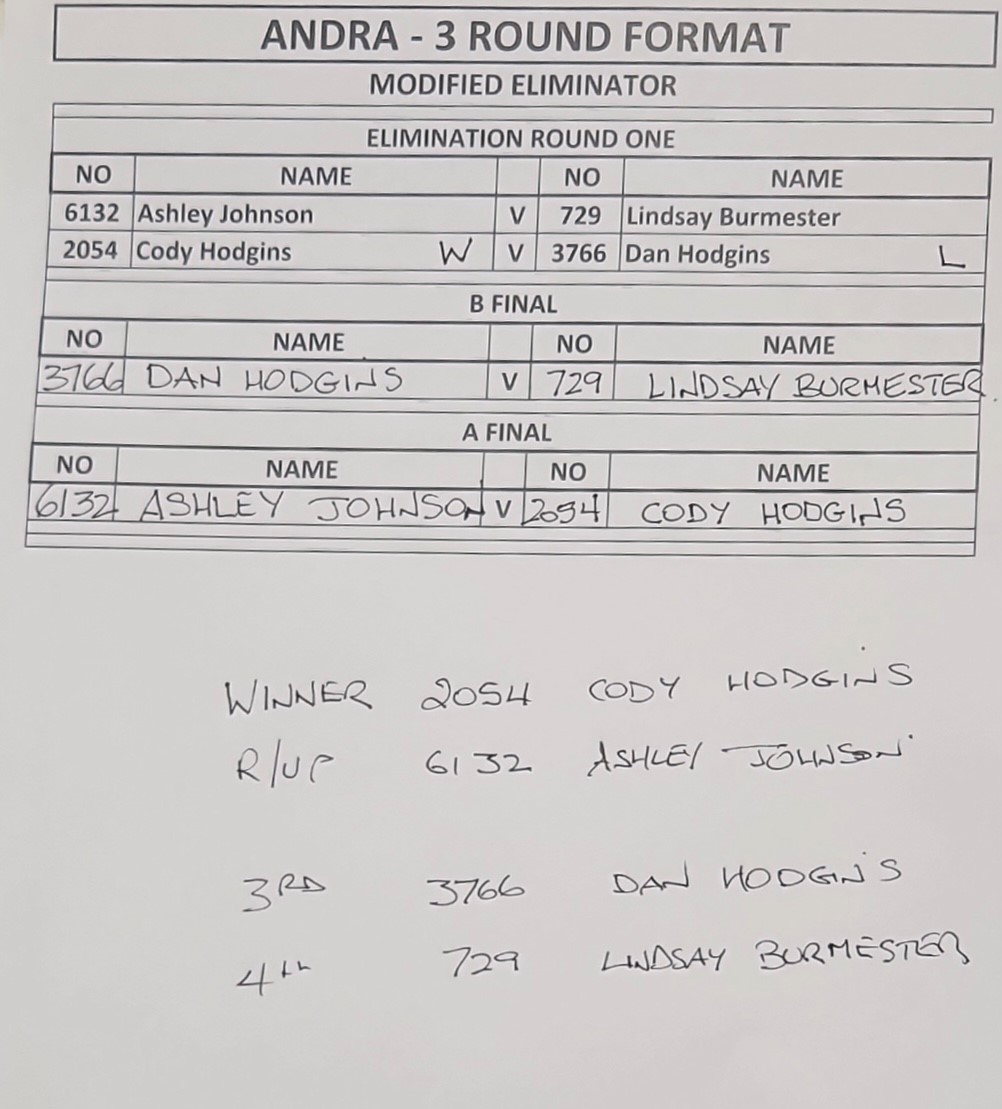 ANDRA - 3 ROUND FORMAT
MODIFIED ELIMINATOR
ELIMINATION ROUND ONE
NO NAME NO NAME
6132 Ashley Johnson V 729 Lindsay Burmester
2054 Cody Hodgins W V 3766 Dan Hodgins L
B FINAL
NO NAME NO NAME
3766 DAN HODGINS V 729 LINDSAY BURMESTER
A FINAL
NO NAME NO NAME
6132 ASHLEY JOHNSON V 2054 CODY HODGINS
WINNER 2054 CODY HODGINS
R/UP 6132 ASHLEY JOHNSON
3RD 3766 DAN HODGINS
4th 729 LINDSAY BURMESTER